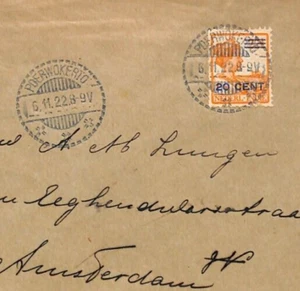 POERWOKERTO
6.11.22.8-9V
POERWOKERTO
6.11.22.8-9V
20 CENT
A M Lungen
Eeghendwarsstraat
Amsterdam